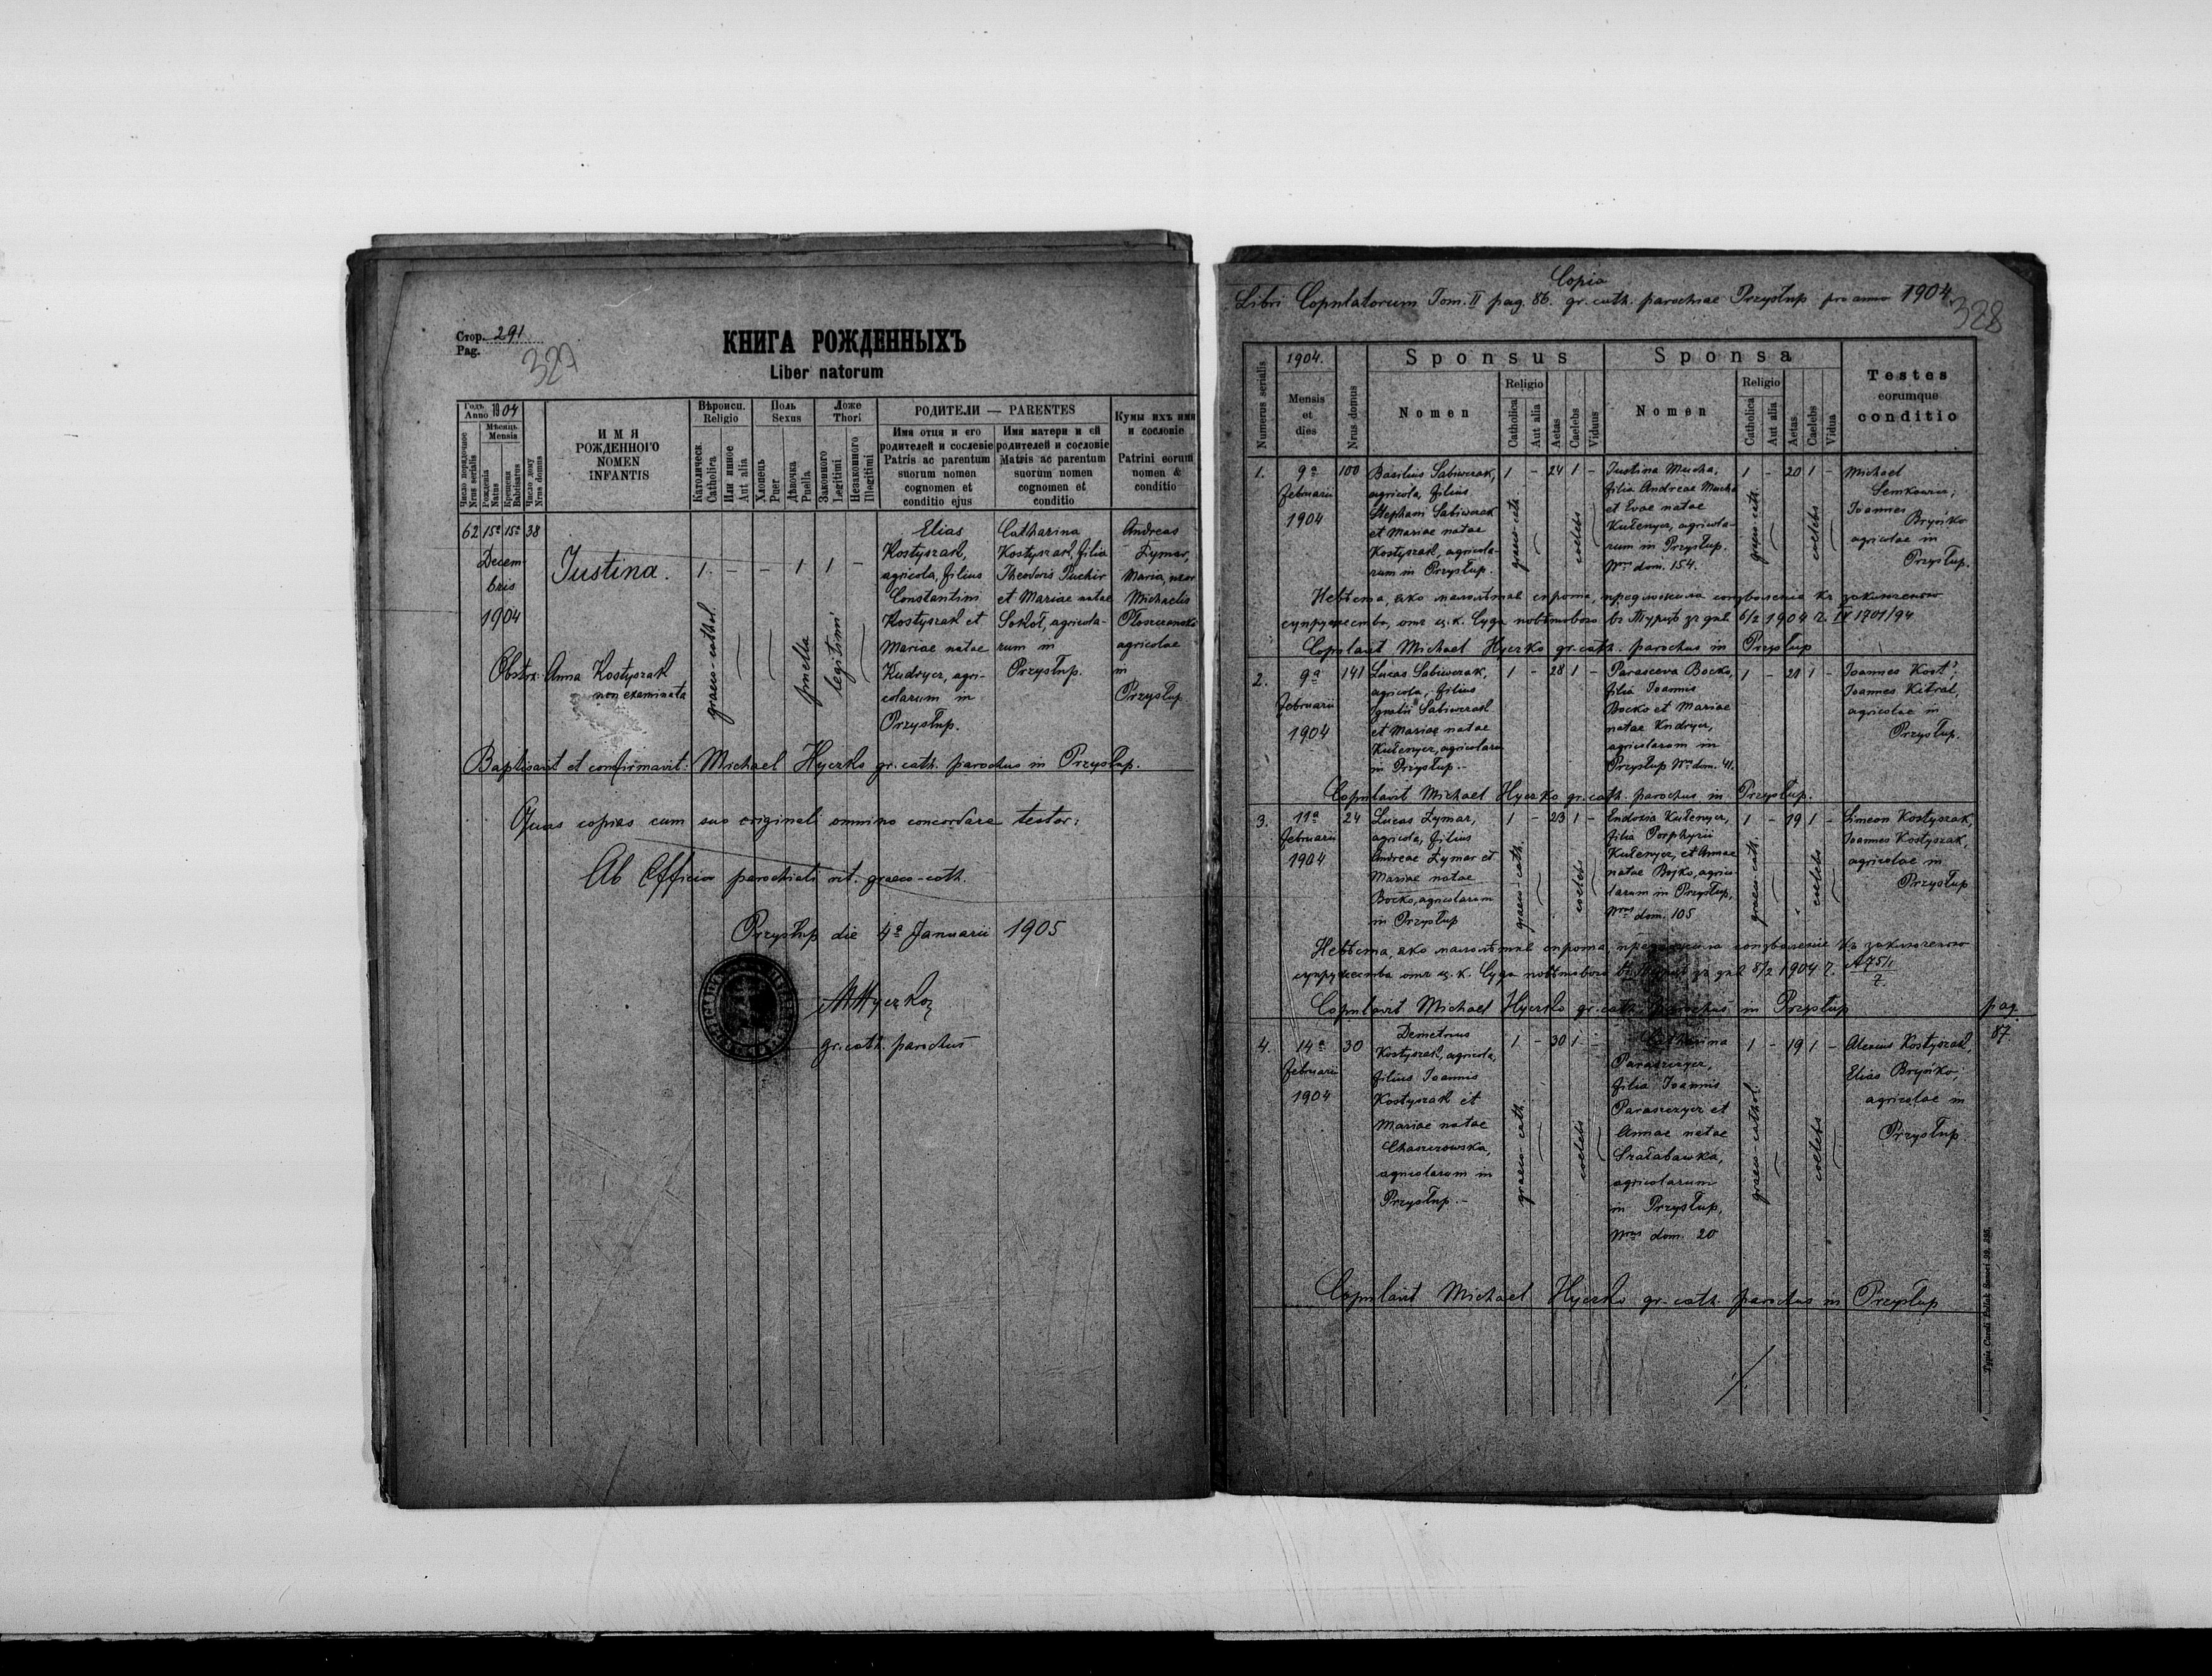 Стор. 291
Pag.
327
КНИГА РОЖДЕННЫХЪ
Liber natorum
Годъ Anno 1904
Мѣсяць Mensis
Число порядочное Nrus serialis
Рожденія Natus
Крещенія Babtisatus
Число дому Nrus domus
ИМЯ
РОЖДЕННОГО
NOMEN
INFANTIS
Вѣроисп. Religio
Католическ. Catholica
Или инное Aut alia
Полъ Sexus
Хлопець Puer
Дѣвочка Puella
Ложе Thori
Законного Legitimi
Незаконного Illegitimi
РОДИТЕЛИ — PARENTES
Имя отця и его
родителей и сословіе
Patris ac parentum
suorum nomen
cognomen et
conditio ejus
Имя матери и ей
родителей и сословіе
Matris ac parentum
suorum nomen
cognomen et
conditio
Кумы ихъ имя
и сословіе
Patrini eorum
nomen &
conditio
62 15ª 15ª 38
Decem
bris
1904
Justina.
1 - - 1 1 -
graeco-cathol.
puella
legitimi
Elias
Kostyszak,
agricola, filius
Constantini
Kostyszak et
Mariae natae
Kudrycz, agri-
colarum in
Przysłup.
Catharina
Kostyszak, filia
Theodori Puchir
et Mariae natae
Sokoł, agricola-
rum in
Przysłup.
Andreas
Żymar,
Maria, uxor
Michaelis
Płoszczansko
agricolae
in
Przysłup
Obstrx: Anna Kostyszak
non examinata
Baptisavit et confirmavit: Michael Hyczko gr. cath. parochus in Przysłup.
Quas copias cum suo originali omnino concordare testor:
Ab Officio parochiali rit. graeco-cath.
Przysłup die 4ª Januarii 1905
MHyczko
gr. cath. parochus
Copia
Libri Copulatorum Tom. II pag. 86. gr. cath. parochiae Przysłup pro anno 1904.
328
Numerus serialis
1904.
Mensis
et
dies
Nrus domus
Sponsus
Nomen
Religio
Catholica
Aut alia
Aetas
Caelebs
Viduus
Sponsa
Nomen
Religio
Catholica
Aut alia
Aetas
Caelebs
Vidua
Testes
eorumque
conditio
1. 9ª
Februarii
1904
100
Basilius Sabiwczak,
agricola, filius
Stephani Sabiwczak
et Mariae natae
Kostyszak, agricola-
rum in Przysłup.
1 - 24 1 -
graeco-cath.
coelebs
Justina Mucha,
filia Andreae Mucha
et Evae natae
Kułenycz, agricola-
rum in Przysłup.
Nrus dom. 154.
1 - 20 1 -
graeco-cath.
coelebs
Michael
Semkowicz;
Joannes
Bryńko
agricolae in
Przysłup.
Невѣста, яко малолѣтна сирота, предложила соизволеніе къ заключенію
супружества, отъ ц. к. Суда повѣтового въ Турцѣ зъ дня 6/2 1904 ч. IV 1701/94
Copulavit Michael Hyczko gr. cath. parochus in Przysłup
2. 9ª
Februarii
1904
141
Lucas Sabiwczak,
agricola, filius
Ignatii Sabiwczak
et Mariae natae
Kułenycz, agricolarum
in Przysłup.-
1 - 28 1 -
Parasceva Bocko,
filia Joannis
Bocko et Mariae
natae Kudrycz,
agricolarum in
Przysłup Nrus dom. 41.
1 - 21 1 -
Joannes Kost';
Joannes Kitral,
agricolae in
Przysłup.
Copulavit Michael Hyczko gr. cath. parochus in Przysłup.
3. 11ª
Februarii
1904
24
Lucas Żymar,
agricola, filius
Andreae Żymar et
Mariae natae
Bocko, agricolarum
in Przysłup
1 - 23 1 -
graeco-cath.
coelebs
Eudoxia Kułenycz,
filia Porphyrii
Kułenycz, et Annae
natae Bojko, agrico-
larum in Przysłup,
Nrus dom. 105
1 - 19 1 -
graeco-cath.
coelebs
Simeon Kostyszak,
Joannes Kostyszak,
agricolae in
Przysłup
Невѣста, яко малолѣтна сирота, предложила соизволеніе къ заключенію
супружества отъ ц. к. Суда повѣтового въ Турцѣ зъ дня 8/2 1904 ч. A 75/1
7.
Copulavit Michael Hyczko gr. cath. parochus in Przysłup
pag.
87
4. 14ª
Februarii
1904
30
Demetrius
Kostyszak, agricola,
filius Joannis
Kostyszak et
Mariae natae
Chaszczowska,
agricolarum in
Przysłup.-
1 - 30 1 -
graeco-cath.
coelebs
Catharina
Paraszczycz,
filia Joannis
Paraszczycz et
Annae natae
Szałabawka,
agricolarum
in Przysłup,
Nrus dom. 20
1 - 19 1 -
graeco-cathol.
coelebs
Alexius Kostyszak,
Elias Bryńko;
agricolae in
Przysłup
Copulavit Michael Hyczko gr. cath. parochus in Przysłup